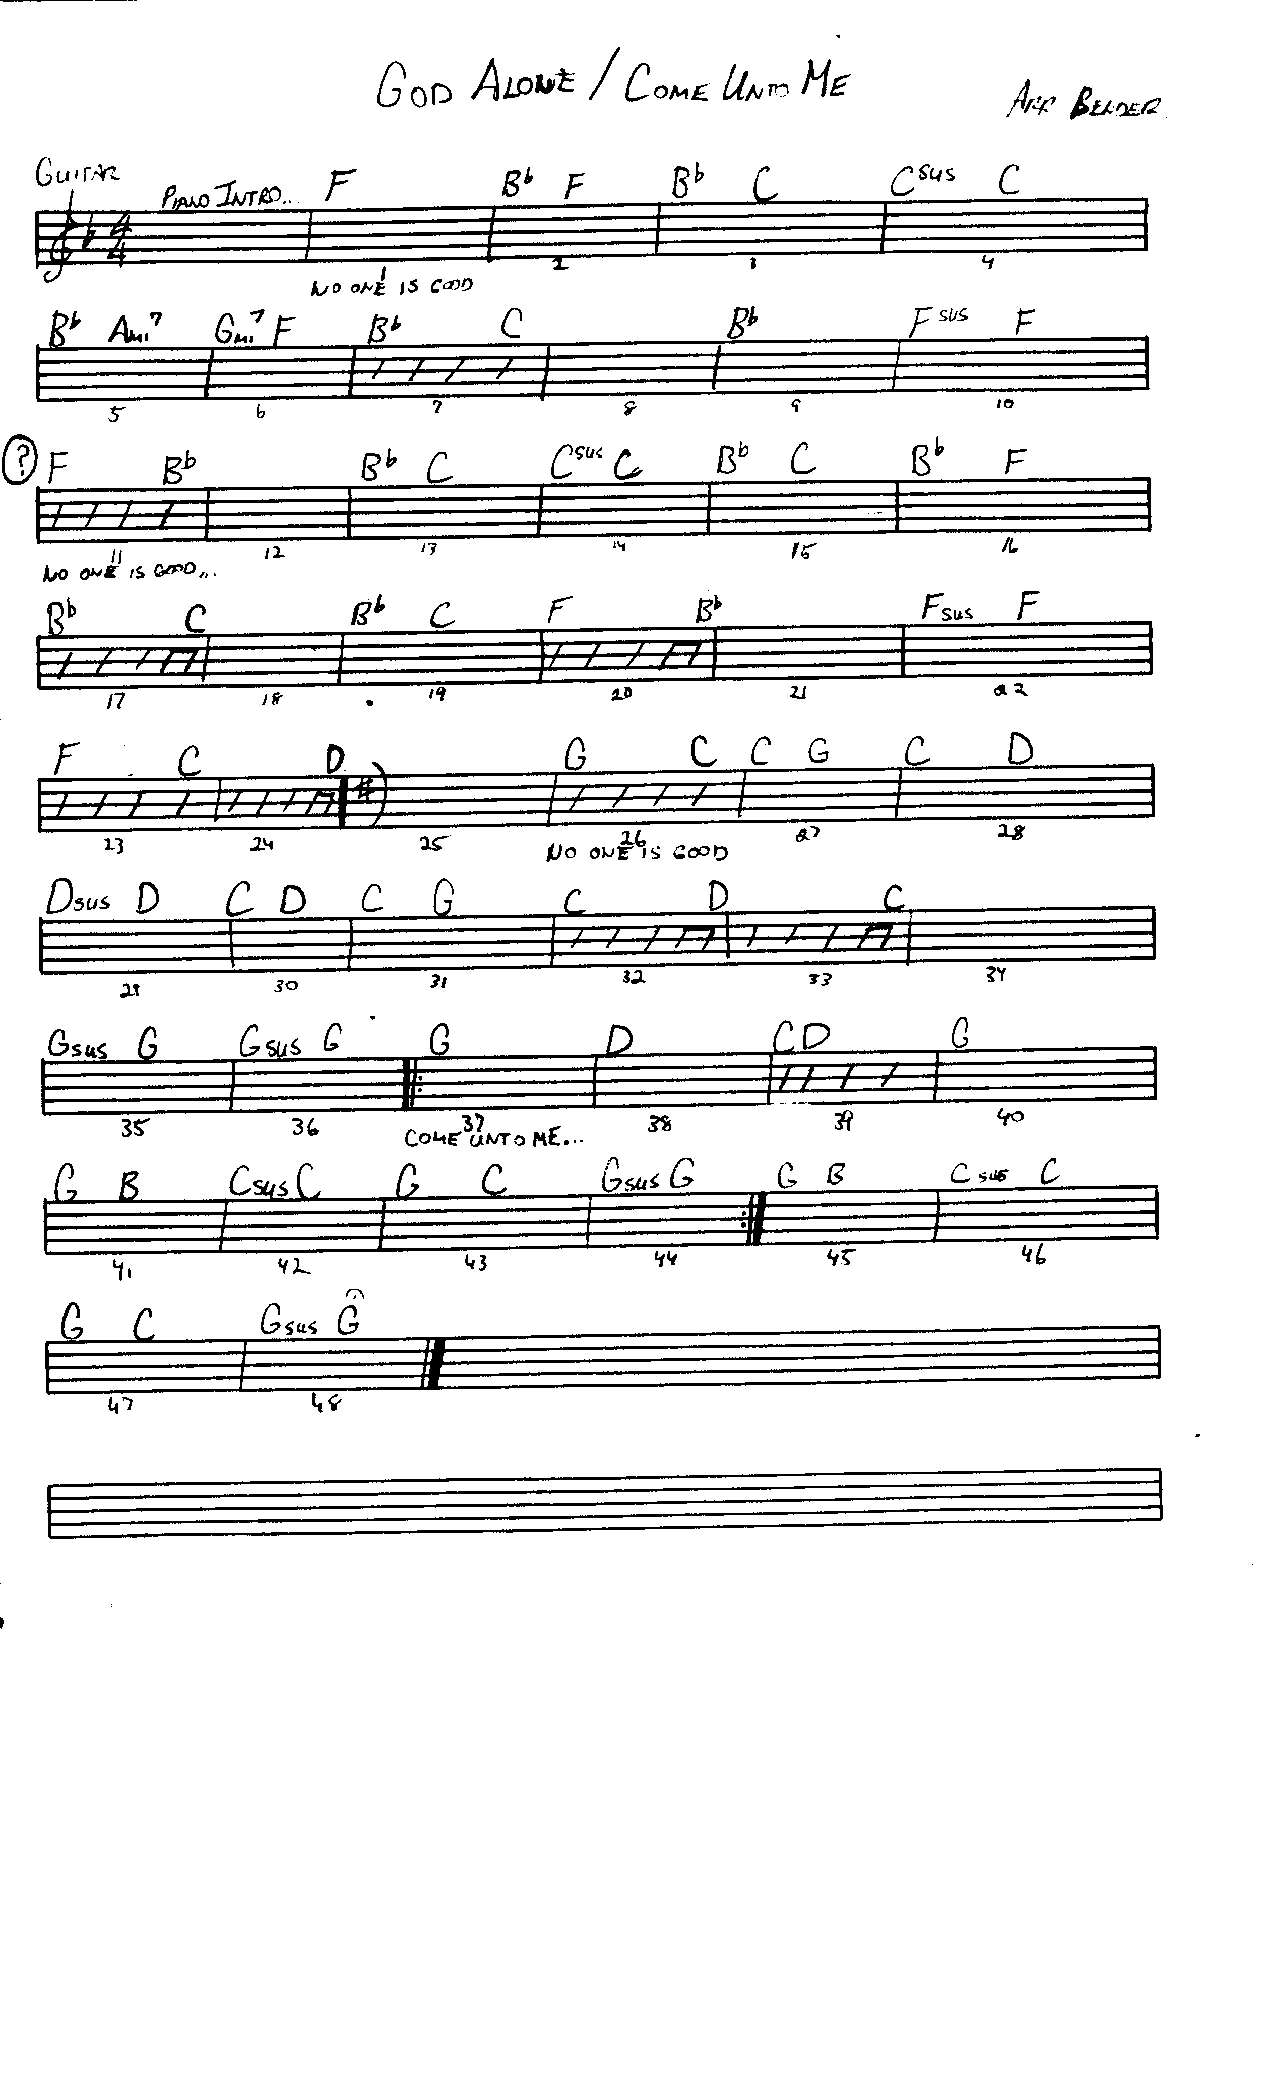 GOD ALONE / COME UNTO ME
ARR BENDER
GUITAR
PIANO INTRO.. F B♭ F B♭ C Csus C
4/4
1 2 3 4
NO ONE IS GOOD
B♭ Ami7 Gmi7 F B♭ C B♭ Fsus F
5 6 7 8 9 10
? F B♭ B♭ C Csus C B♭ C B♭ F
11 12 13 14 15 16
NO ONE IS GOOD...
B♭ C B♭ C F B♭ Fsus F
17 18 19 20 21 22
F C D G C C G C D
23 24 25 26 27 28
NO ONE IS GOOD
Dsus D C D C G C D C
29 30 31 32 33 34
Gsus G Gsus G G D C D G
35 36 37 38 39 40
COME UNTO ME...
G B Csus C G C Gsus G G B Csus C
41 42 43 44 45 46
G C Gsus G
47 48